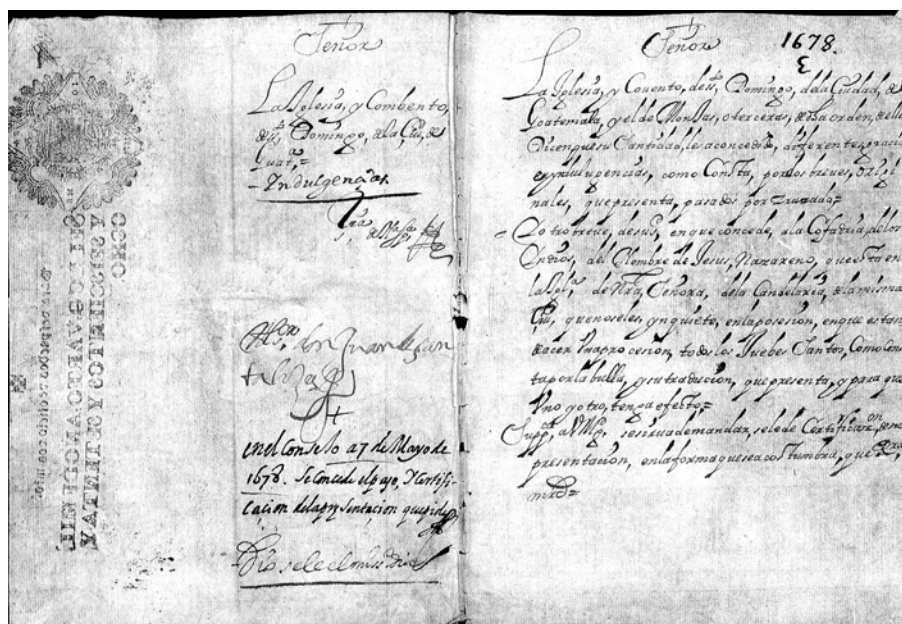 Señor
La Iglesia, y Combento,
de sto Domingo, de la Ciu, de
Guata,=
- Indulgencias.
en el Consejo a 7 de Mayo de
1678. Se Concede el pajo, Y Certifi-
cacion de la presentacion que pide
Dio se le el mismo dia
Señor
1678.
3
La Iglesia, y Couento, de sto, Domingo, de la Ciudad, de
Goatemala, y el de Monjas, o terceras, de dha orden, de ella
Dicen que su Santidad, les a concedido, diferentes, gracias
e yndulugencias, como Consta, por los breues, origi-
nales, que presenta, pasados por Cruzada=
- Y otro breue, de su sd, en que concede, a la Cofadria, de los
Yndios, del Nombre de Jesus, Nazareno, que esta en
la Iglª, de Nra, Señora, de la Candelaria, de la misma
Ciu, que no se les, ynquiete, en la posesion, en que estan
de acer Vna procesion, todos los Juebes Santos, Como Cons
ta por la bulla, y su traducion, que presenta, y para que
Vno y otro, tenga efecto,=
Suppca, a VMg, se sirua de mandar, se le de Certificazon, de su
presentacion, en la forma que se a costumbra, que
mrd=